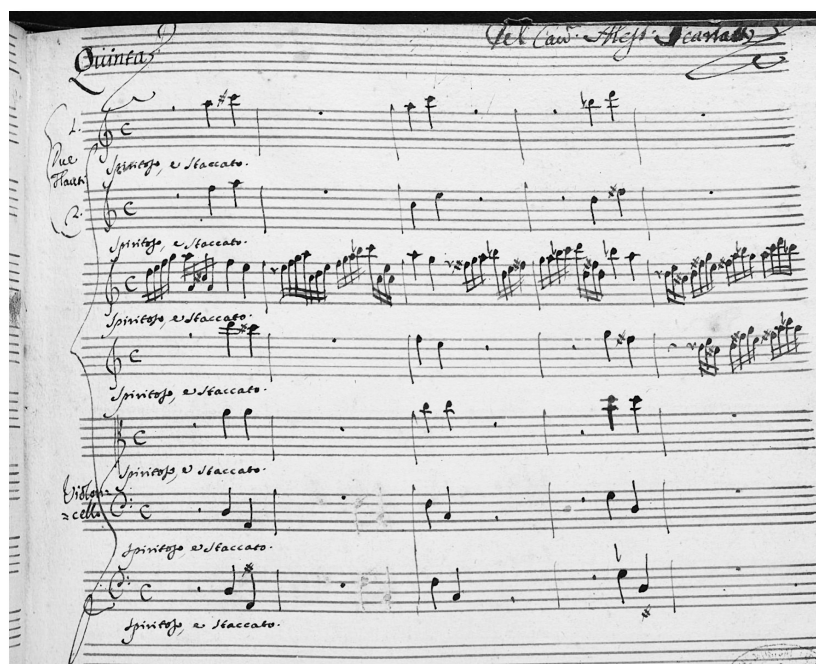 Quinta
Del Cavr. Aless. Scarlatti
1.
Due
Flauti
Spiritoso, e Staccato.
2.
Spiritoso, e Staccato.
Spiritoso, e Staccato.
Spiritoso, e Staccato.
Spiritoso, e Staccato.
Violon=
=cello
Spiritoso, e Staccato.
Spiritoso, e Staccato.